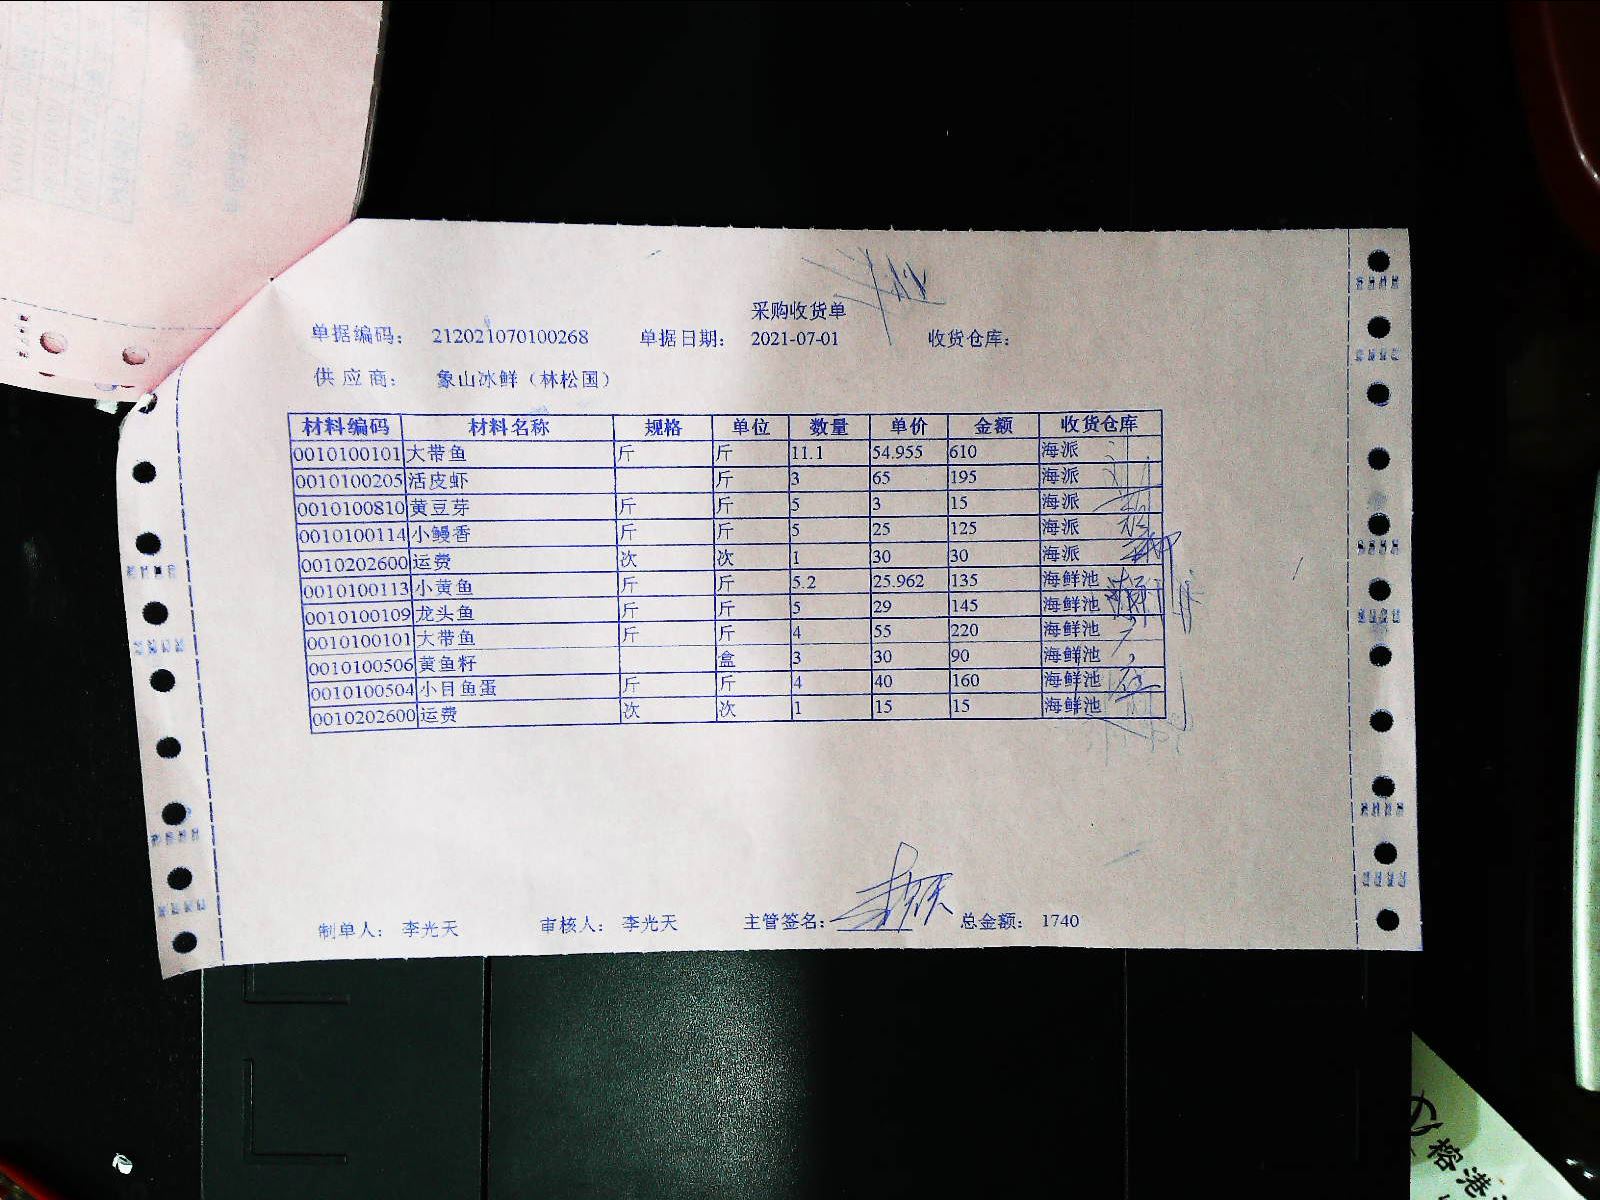 采购收货单
单据编码： 212021070100268 单据日期： 2021-07-01 收货仓库：
供 应 商： 象山冰鲜（林松国）
材料编码 材料名称 规格 单位 数量 单价 金额 收货仓库
0010100101 大带鱼 斤 斤 11.1 54.955 610 海派
0010100205 活皮虾 斤 3 65 195 海派
0010100810 黄豆芽 斤 斤 5 3 15 海派
0010100114 小鳗香 斤 斤 5 25 125 海派
0010202600 运费 次 次 1 30 30 海派
0010100113 小黄鱼 斤 斤 5.2 25.962 135 海鲜池
0010100109 龙头鱼 斤 斤 5 29 145 海鲜池
0010100101 大带鱼 斤 斤 4 55 220 海鲜池
0010100506 黄鱼籽 盒 3 30 90 海鲜池
0010100504 小目鱼蛋 斤 斤 4 40 160 海鲜池
0010202600 运费 次 次 1 15 15 海鲜池
制单人： 李光天 审核人： 李光天 主管签名： 总金额： 1740
榕港